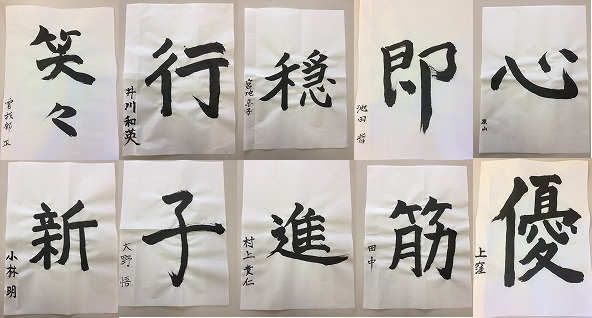 笑々
行
井川和英
穏
宮地京子
即
池田哲
心
新
小林明
子
天野悟
進
村上貴仁
筋
田中
優
上窪